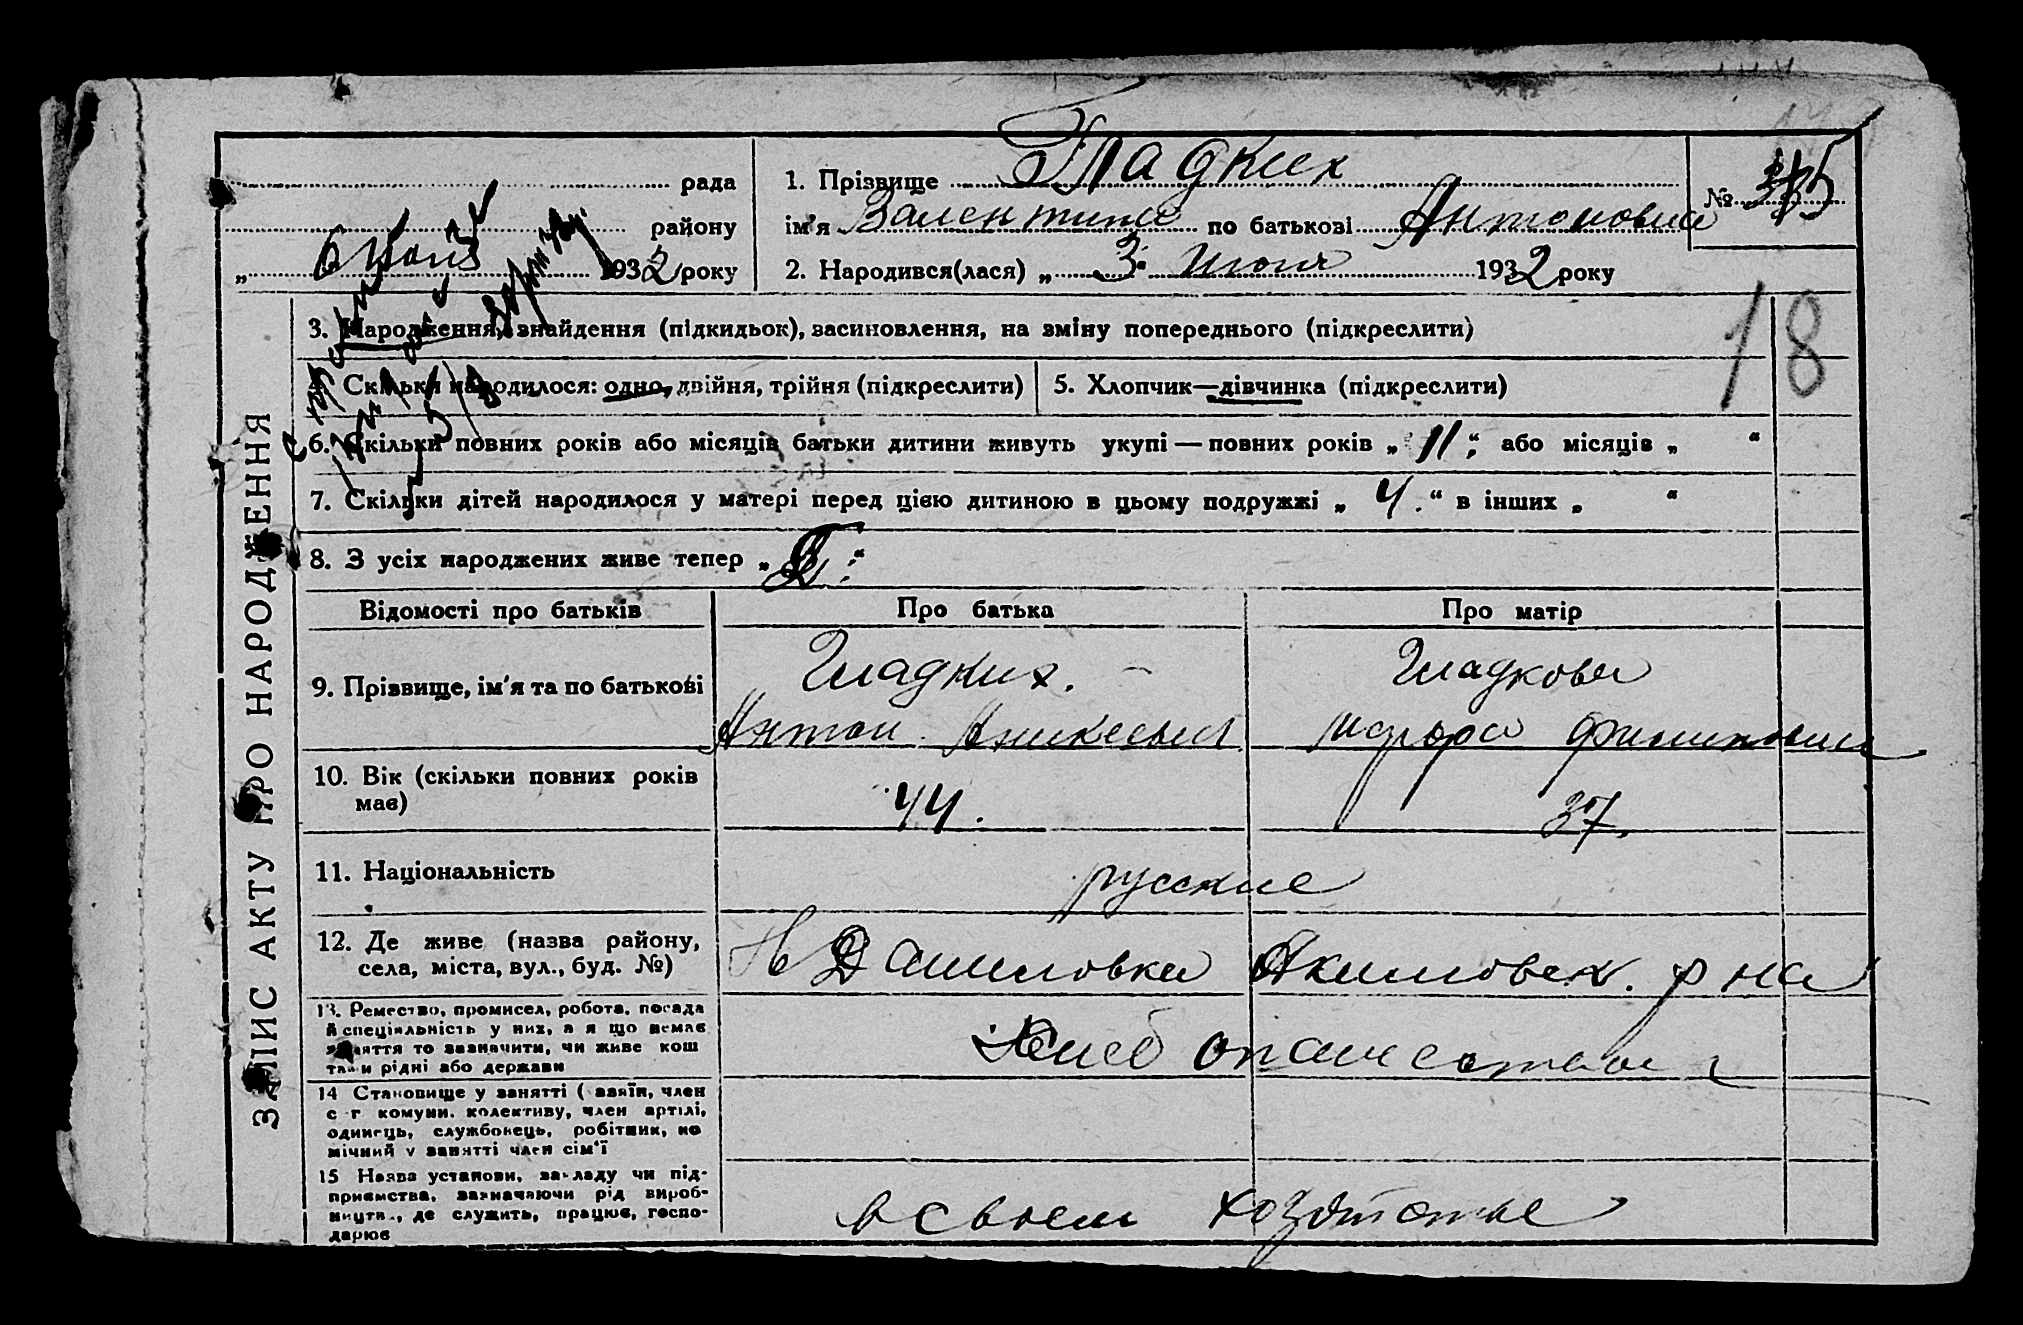 рада
району
6 Июня 1932 року
1. Прізвище Гладких
ім'я Валентина по батькові Антоновна
2. Народився(лася) „ 3 Июня 1932 року
№ 385
18
ЗАПИС АКТУ ПРО НАРОДЖЕННЯ
3. Народження, знайдення (підкидьок), засиновлення, на зміну попереднього (підкреслити)
4. Скільки народилося: одно, двійня, трійня (підкреслити)
5. Хлопчик—дівчинка (підкреслити)
6. Скільки повних років або місяців батьки дитини живуть укупі — повних років „ 11 “; або місяців „ “
7. Скільки дітей народилося у матері перед цією дитиною в цьому подружжі „ 4. “ в інших „ “
8. З усіх народжених живе тепер „ “
Відомості про батьків
Про батька
Про матір
9. Прізвище, ім'я та по батькові
Гладких.
Антон
Гладкова
10. Вік (скільки повних років
має)
44.
37.
11. Національність
русские
12. Де живе (назва району,
села, міста, вул., буд. №)
Н Даниловка Акимовск. р на
13. Ремество, промисел, робота, посада
й спеціяльність у них, а я що немає
заняття то зазначити, чи живе кош
тами рідні або держави
Хлебопашество
14 Становище у занятті (хазяїн, член
с-г комуни, колективу, член артілі,
одинець, службовець, робітник, по
мічний у занятті член сім'ї
15 Назва установи, закладу чи під-
приємства, зазначаючи рід вироб-
ництва, де служить, працює, госпо-
дарює
в своем хозяйстве